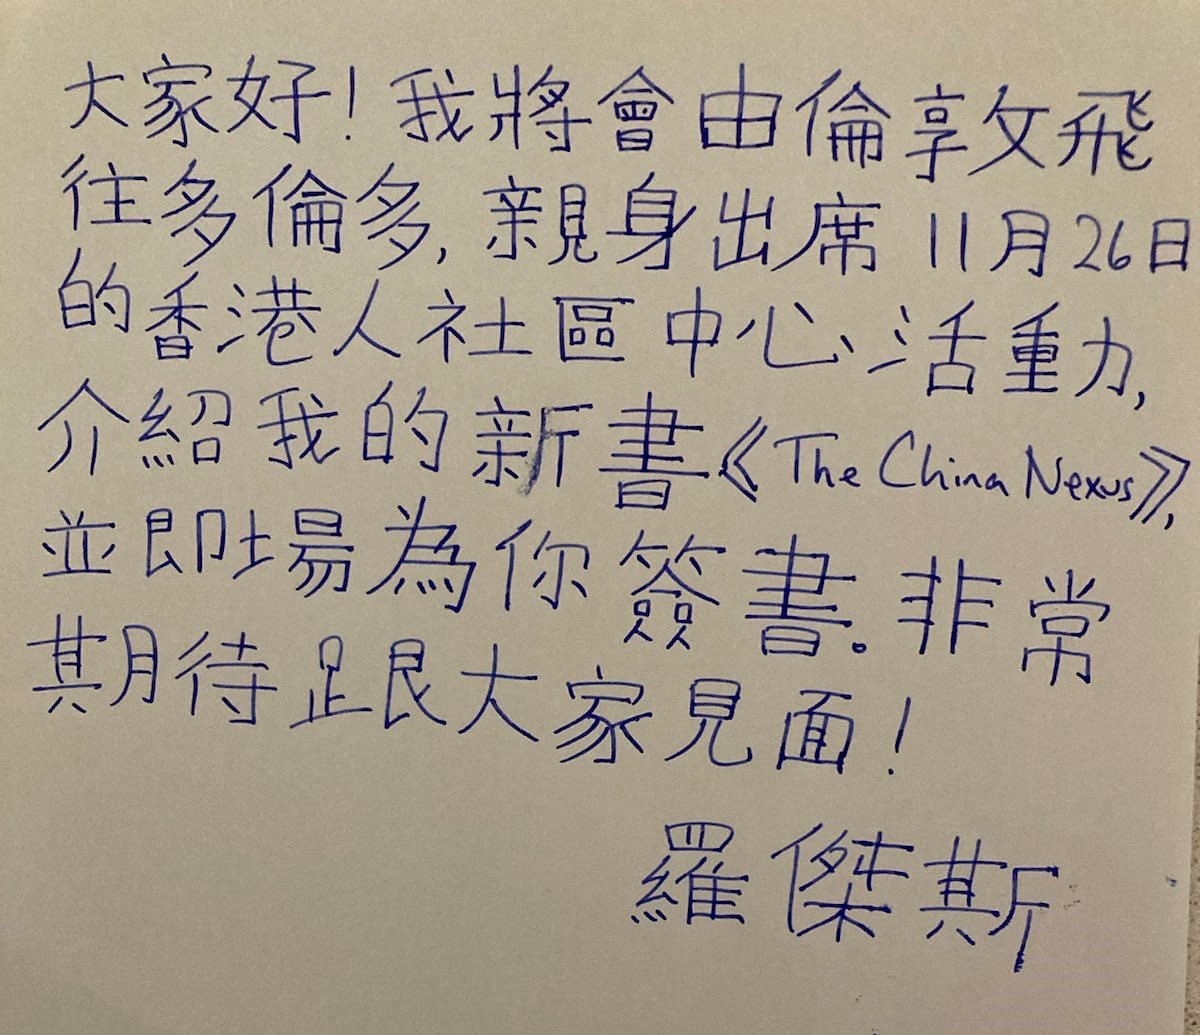 大家好！我將會由倫敦飛
往多倫多，親身出席 11月26日
的香港人社區中心活動，
介紹我的新書《The China Nexus》，
並即場為你簽書。非常
期待跟大家見面！
羅傑斯